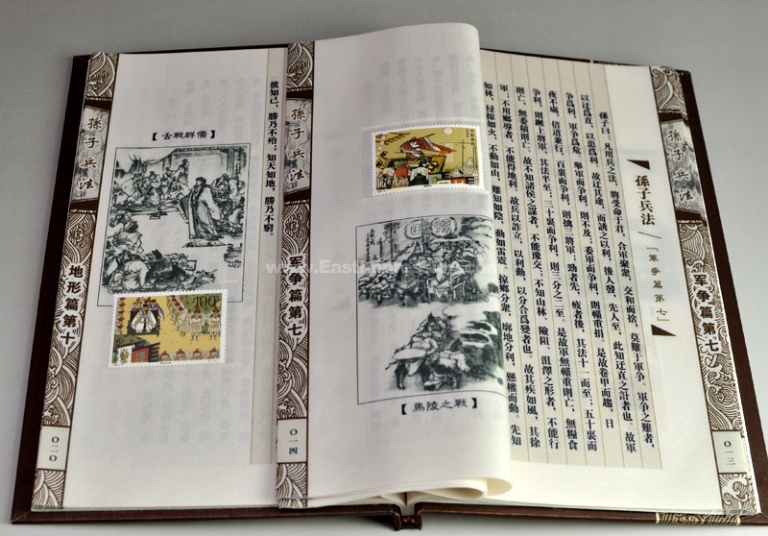 孫子兵法
军争篇第七
〇一三
孫子兵法
「軍争篇第七」
孫子曰：凡用兵之法，將受命于君，合軍聚衆，交和而捨，莫難于軍争。軍争之難者，
以迂爲直，以患爲利。故迂其途，而誘之以利，後人發，先人至，此知迂直之計者也。故軍
争爲利，軍争爲危。舉軍而争利，則不及；委軍而争利，則輜重捐。是故卷甲而趨，日
夜不處，倍道兼行，百裏而争利，則擒三將軍；勁者先，疲者後，其法十一而至；五十裏而
争利，則蹶上將軍，其法半至；三十裏而争利，則三分之二至。是故軍無輜重則亡，無糧食
則亡，無委積則亡。故不知諸侯之謀者，不能豫交；不知山林、險阻、沮澤之形者，不能行
軍；不用鄉導者，不能得地利。故兵以詐立，以利動，以分合爲變者也。故其疾如風，其徐
如林，侵掠如火，不動如山，難知如陰，動如雷震。掠鄉分衆，廓地分利，懸權而動。先知
【馬陵之戰】
孫子兵法
军争篇第七
〇一四
彼知己，勝乃不殆；知天知地，勝乃不窮。
【舌戰群儒】
100
孫子兵法
地形篇第十
〇二〇